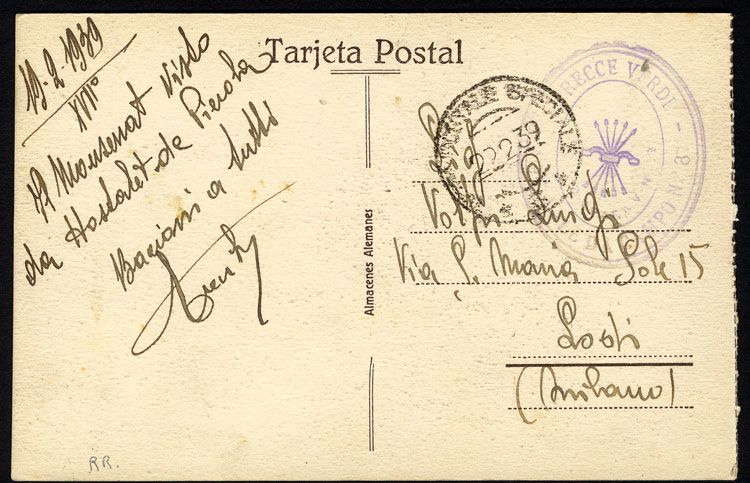 Tarjeta Postal
19-2-1939
XVII°
Il Monserrat visto
da Hostalet de Pierola
Bacioni a tutti
Almacenes Alemanes
22.2.39
SPECIALE
FRECCE VERDI
N. 8
Sig.
Volpi Luigi
Via S. Maria Sole 15
Lodi
(Milano)
RR.